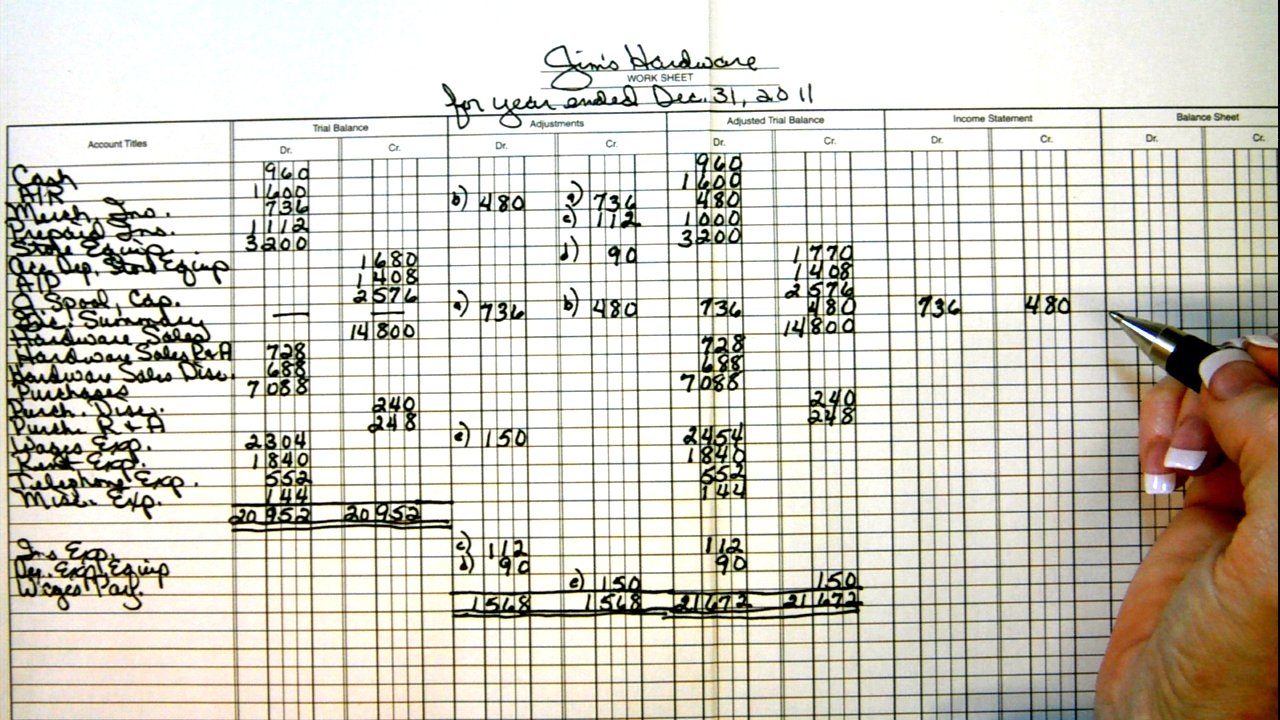 Jim's Hardware
WORK SHEET
for year ended Dec. 31, 2011
Account Titles Trial Balance Adjustments Adjusted Trial Balance Income Statement Balance Sheet
Dr. Cr. Dr. Cr. Dr. Cr. Dr. Cr. Dr. Cr.
Cash 960 960
A/R 1600 1600
Merch. Ins. 736 b) 480 a) 736 480
Prepaid Ins. 1112 c) 112 1000
Store Equip. 3200 3200
Acc. Dep. Store Equip 1680 d) 90 1770
A/P 1408 1408
J Spool, Cap. 2576 2576
Inc. Summary — — a) 736 b) 480 736 480 736 480
Hardware Sales 14800 14800
Hardware Sales R&A 728 728
Hardware Sales Disc. 688 688
Purchases 7088 7088
Purch. Disc. 240 240
Purch. R & A 248 248
Wages Exp. 2304 e) 150 2454
Rent Exp. 1840 1840
Telephone Exp. 552 552
Misc. Exp. 144 144
20952 20952
Ins Exp. c) 112 112
Dep. Exp. Equip d) 90 90
Wages Pay. e) 150 150
1568 1568 21672 21672